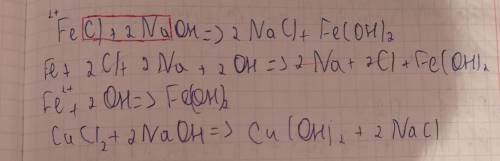 2+
FeCl + 2NaOH => 2NaCl + Fe(OH)2
Fe + 2Cl + 2Na + 2OH => 2Na + 2Cl + Fe(OH)2
Fe2+ + 2OH => Fe(OH)2
CuCl2 + 2NaOH => Cu(OH)2 + 2NaCl